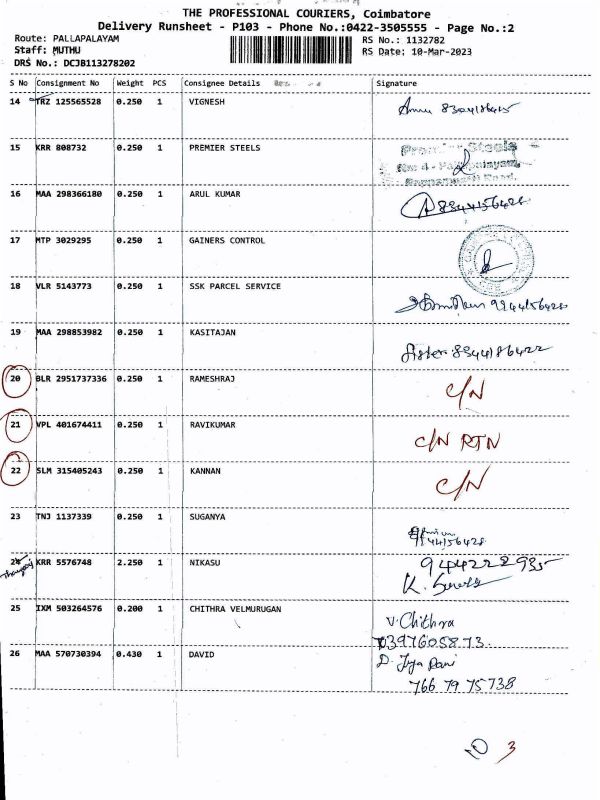 THE PROFESSIONAL COURIERS, Coimbatore
Delivery Runsheet - P103 - Phone No.:0422-3505555 - Page No.:2
Route: PALLAPALAYAM RS No.: 1132782
Staff: MUTHU RS Date: 10-Mar-2023
DRS No.: DCJB113278202
S No Consignment No Weight PCS Consignee Details Signature
14 TRZ 125565528 0.250 1 VIGNESH
15 KRR 808732 0.250 1 PREMIER STEELS Premier Steels
16 MAA 298366180 0.250 1 ARUL KUMAR
17 MTP 3029295 0.250 1 GAINERS CONTROL
18 VLR 5143773 0.250 1 SSK PARCEL SERVICE
19 MAA 298853982 0.250 1 KASITAJAN Sister
20 BLR 2951737336 0.250 1 RAMESHRAJ C/N
21 VPL 401674411 0.250 1 RAVIKUMAR C/N RTN
22 SLM 315405243 0.250 1 KANNAN C/N
23 TNJ 1137339 0.250 1 SUGANYA
24 KRR 5576748 2.250 1 NIKASU 9442222935
25 IXM 503264576 0.200 1 CHITHRA VELMURUGAN V. Chithra
26 MAA 570730394 0.430 1 DAVID D. Jeya Rani
766 79 75738
10 3